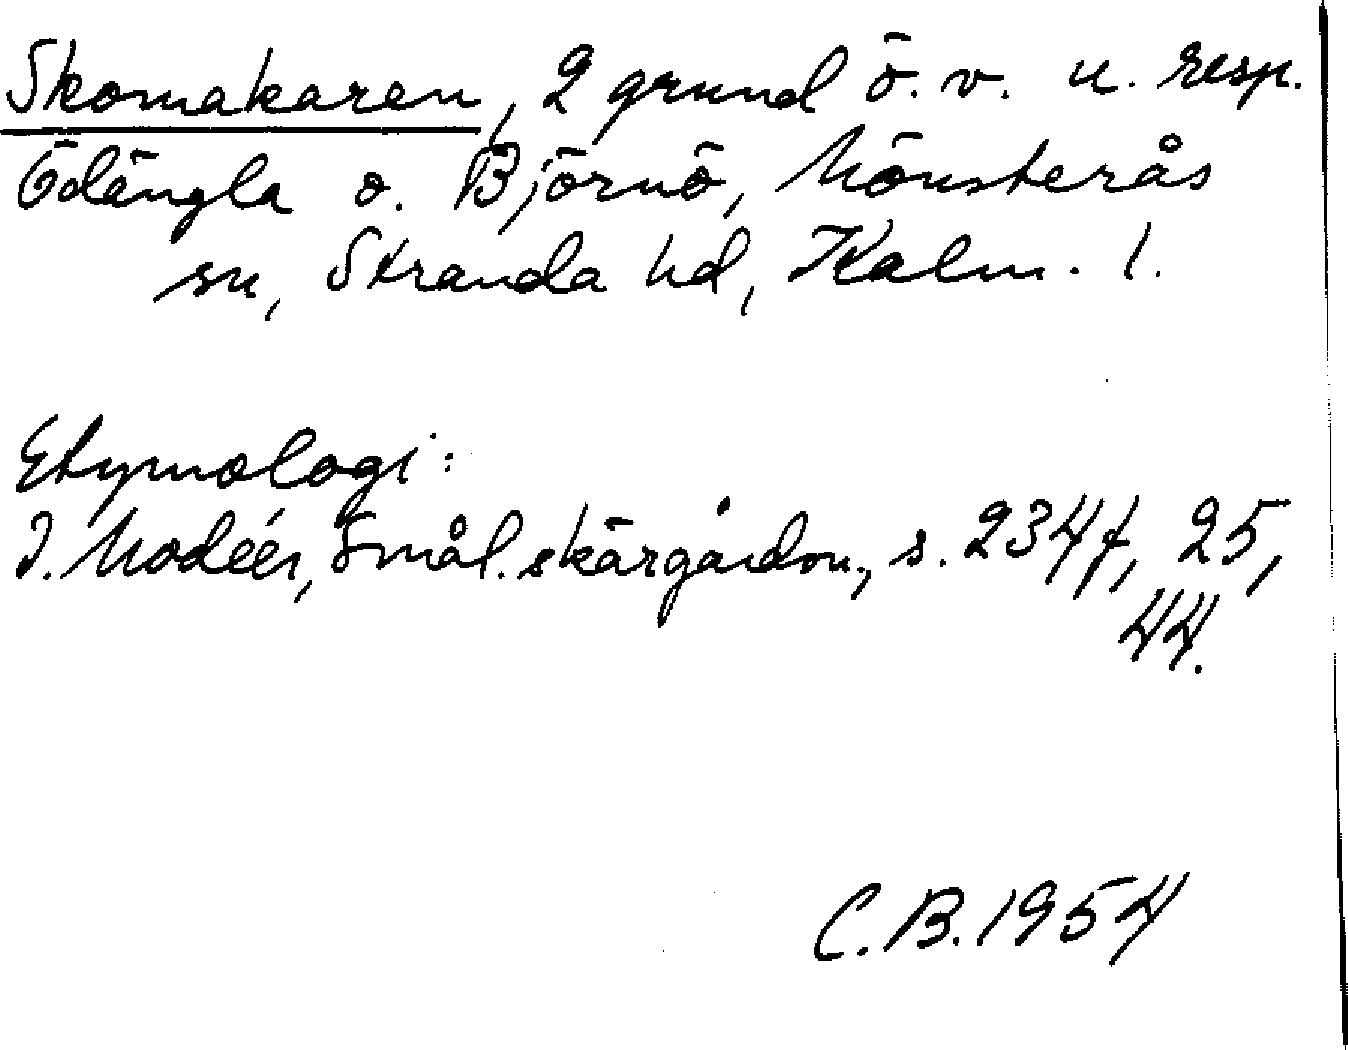 Skomakaren, 2 grund ö. v. n. resp.
Ödängla o. Björnö, Mönsterås
sn, Stranda hd, Kalm. l.
Etymologi:
I. Modéer, Smål. skärgårdsn., s. 234f, 25,
44.
C. B. 1954